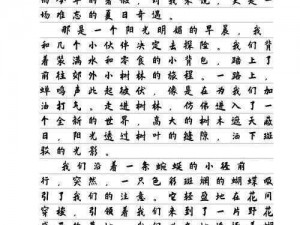 高高挂的暑假，对我来说，更是一
场难忘的夏日奇遇。
那是一个阳光明媚的早晨，我
和几个小伙伴决定去探险。我们背
着装满水和零食的小背包，踏上了
前往郊外小树林的旅程。一路上，
蝉鸣声此起彼伏，像是在为我们加
油打气。走进树林，仿佛进入了一
个全新的世界，高大的树木遮天蔽
日，阳光透过树叶的缝隙，洒下斑
驳的光影。
我们沿着一条蜿蜒的小径前
行，突然，一只色彩斑斓的蝴蝶吸
引了我们的注意。它轻盈地在花间
穿梭，引领着我们来到了一片野花